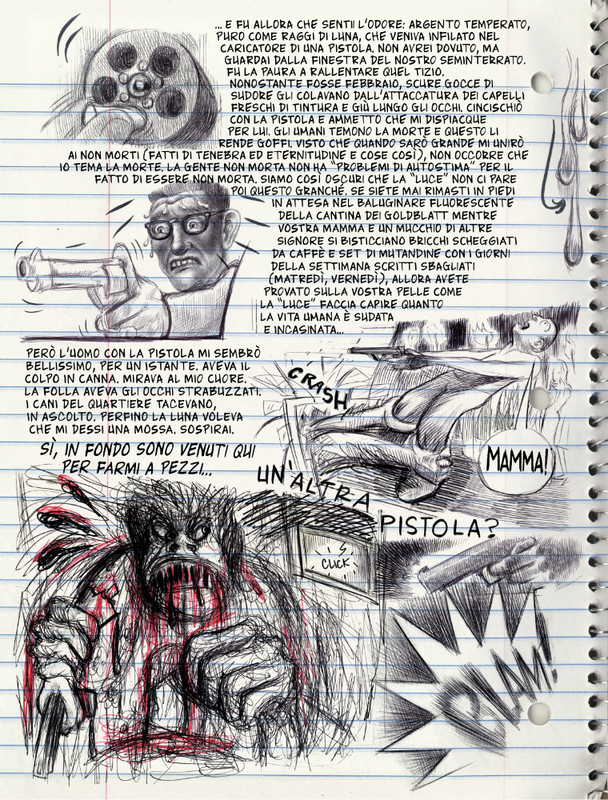 ... E FU ALLORA CHE SENTII L'ODORE: ARGENTO TEMPERATO,
PURO COME RAGGI DI LUNA, CHE VENIVA INFILATO NEL
CARICATORE DI UNA PISTOLA. NON AVREI DOVUTO, MA
GUARDAI DALLA FINESTRA DEL NOSTRO SEMINTERRATO.
FU LA PAURA A RALLENTARE QUEL TIZIO.
NONOSTANTE FOSSE FEBBRAIO, SCURE GOCCE DI
SUDORE GLI COLAVANO DALL'ATTACCATURA DEI CAPELLI
FRESCHI DI TINTURA E GIÙ LUNGO GLI OCCHI. CINCISCHIÒ
CON LA PISTOLA E AMMETTO CHE MI DISPIACQUE
PER LUI. GLI UMANI TEMONO LA MORTE E QUESTO LI
RENDE GOFFI. VISTO CHE QUANDO SARÒ GRANDE MI UNIRÒ
AI NON MORTI (FATTI DI TENEBRA ED ETERNITUDINE E COSE COSÌ), NON OCCORRE CHE
IO TEMA LA MORTE. LA GENTE NON MORTA NON HA "PROBLEMI DI AUTOSTIMA" PER IL
FATTO DI ESSERE NON MORTA. SIAMO COSÌ OSCURI CHE LA "LUCE" NON CI PARE
POI QUESTO GRANCHÉ. SE SIETE MAI RIMASTI IN PIEDI
IN ATTESA NEL BALUGINARE FLUORESCENTE
DELLA CANTINA DEI GOLDBLATT MENTRE
VOSTRA MAMMA E UN MUCCHIO DI ALTRE
SIGNORE SI BISTICCIANO BRICCHI SCHEGGIATI
DA CAFFÈ E SET DI MUTANDINE CON I GIORNI
DELLA SETTIMANA SCRITTI SBAGLIATI
(MATREDÌ, VERNEDÌ), ALLORA AVETE
PROVATO SULLA VOSTRA PELLE COME
LA "LUCE" FACCIA CAPIRE QUANTO
LA VITA UMANA È SUDATA
E INCASINATA...
PERÒ L'UOMO CON LA PISTOLA MI SEMBRÒ
BELLISSIMO, PER UN ISTANTE. AVEVA IL
COLPO IN CANNA. MIRAVA AL MIO CUORE.
LA FOLLA AVEVA GLI OCCHI STRABUZZATI.
I CANI DEL QUARTIERE TACEVANO,
IN ASCOLTO. PERFINO LA LUNA VOLEVA
CHE MI DESSI UNA MOSSA. SOSPIRAI.
SÌ, IN FONDO SONO VENUTI QUI
PER FARMI A PEZZI...
CRASH
MAMMA!
UN'ALTRA
PISTOLA?
CLICK
BLAM!